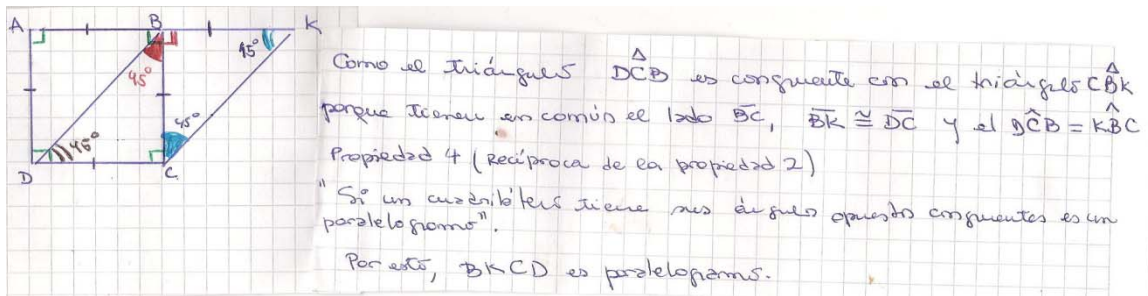 A B K
45°
45°
45°
45°
D C
Como el triángulo DCB es congruente con el triángulo CBK
porque tienen en común el lado BC, BK ≅ DC y el DĈB = KB̂C
Propiedad 4 (Recíproca de la propiedad 2)
"Si un cuadrilátero tiene sus ángulos opuestos congruentes es un
paralelogramo".
Por esto, BKCD es paralelogramo.